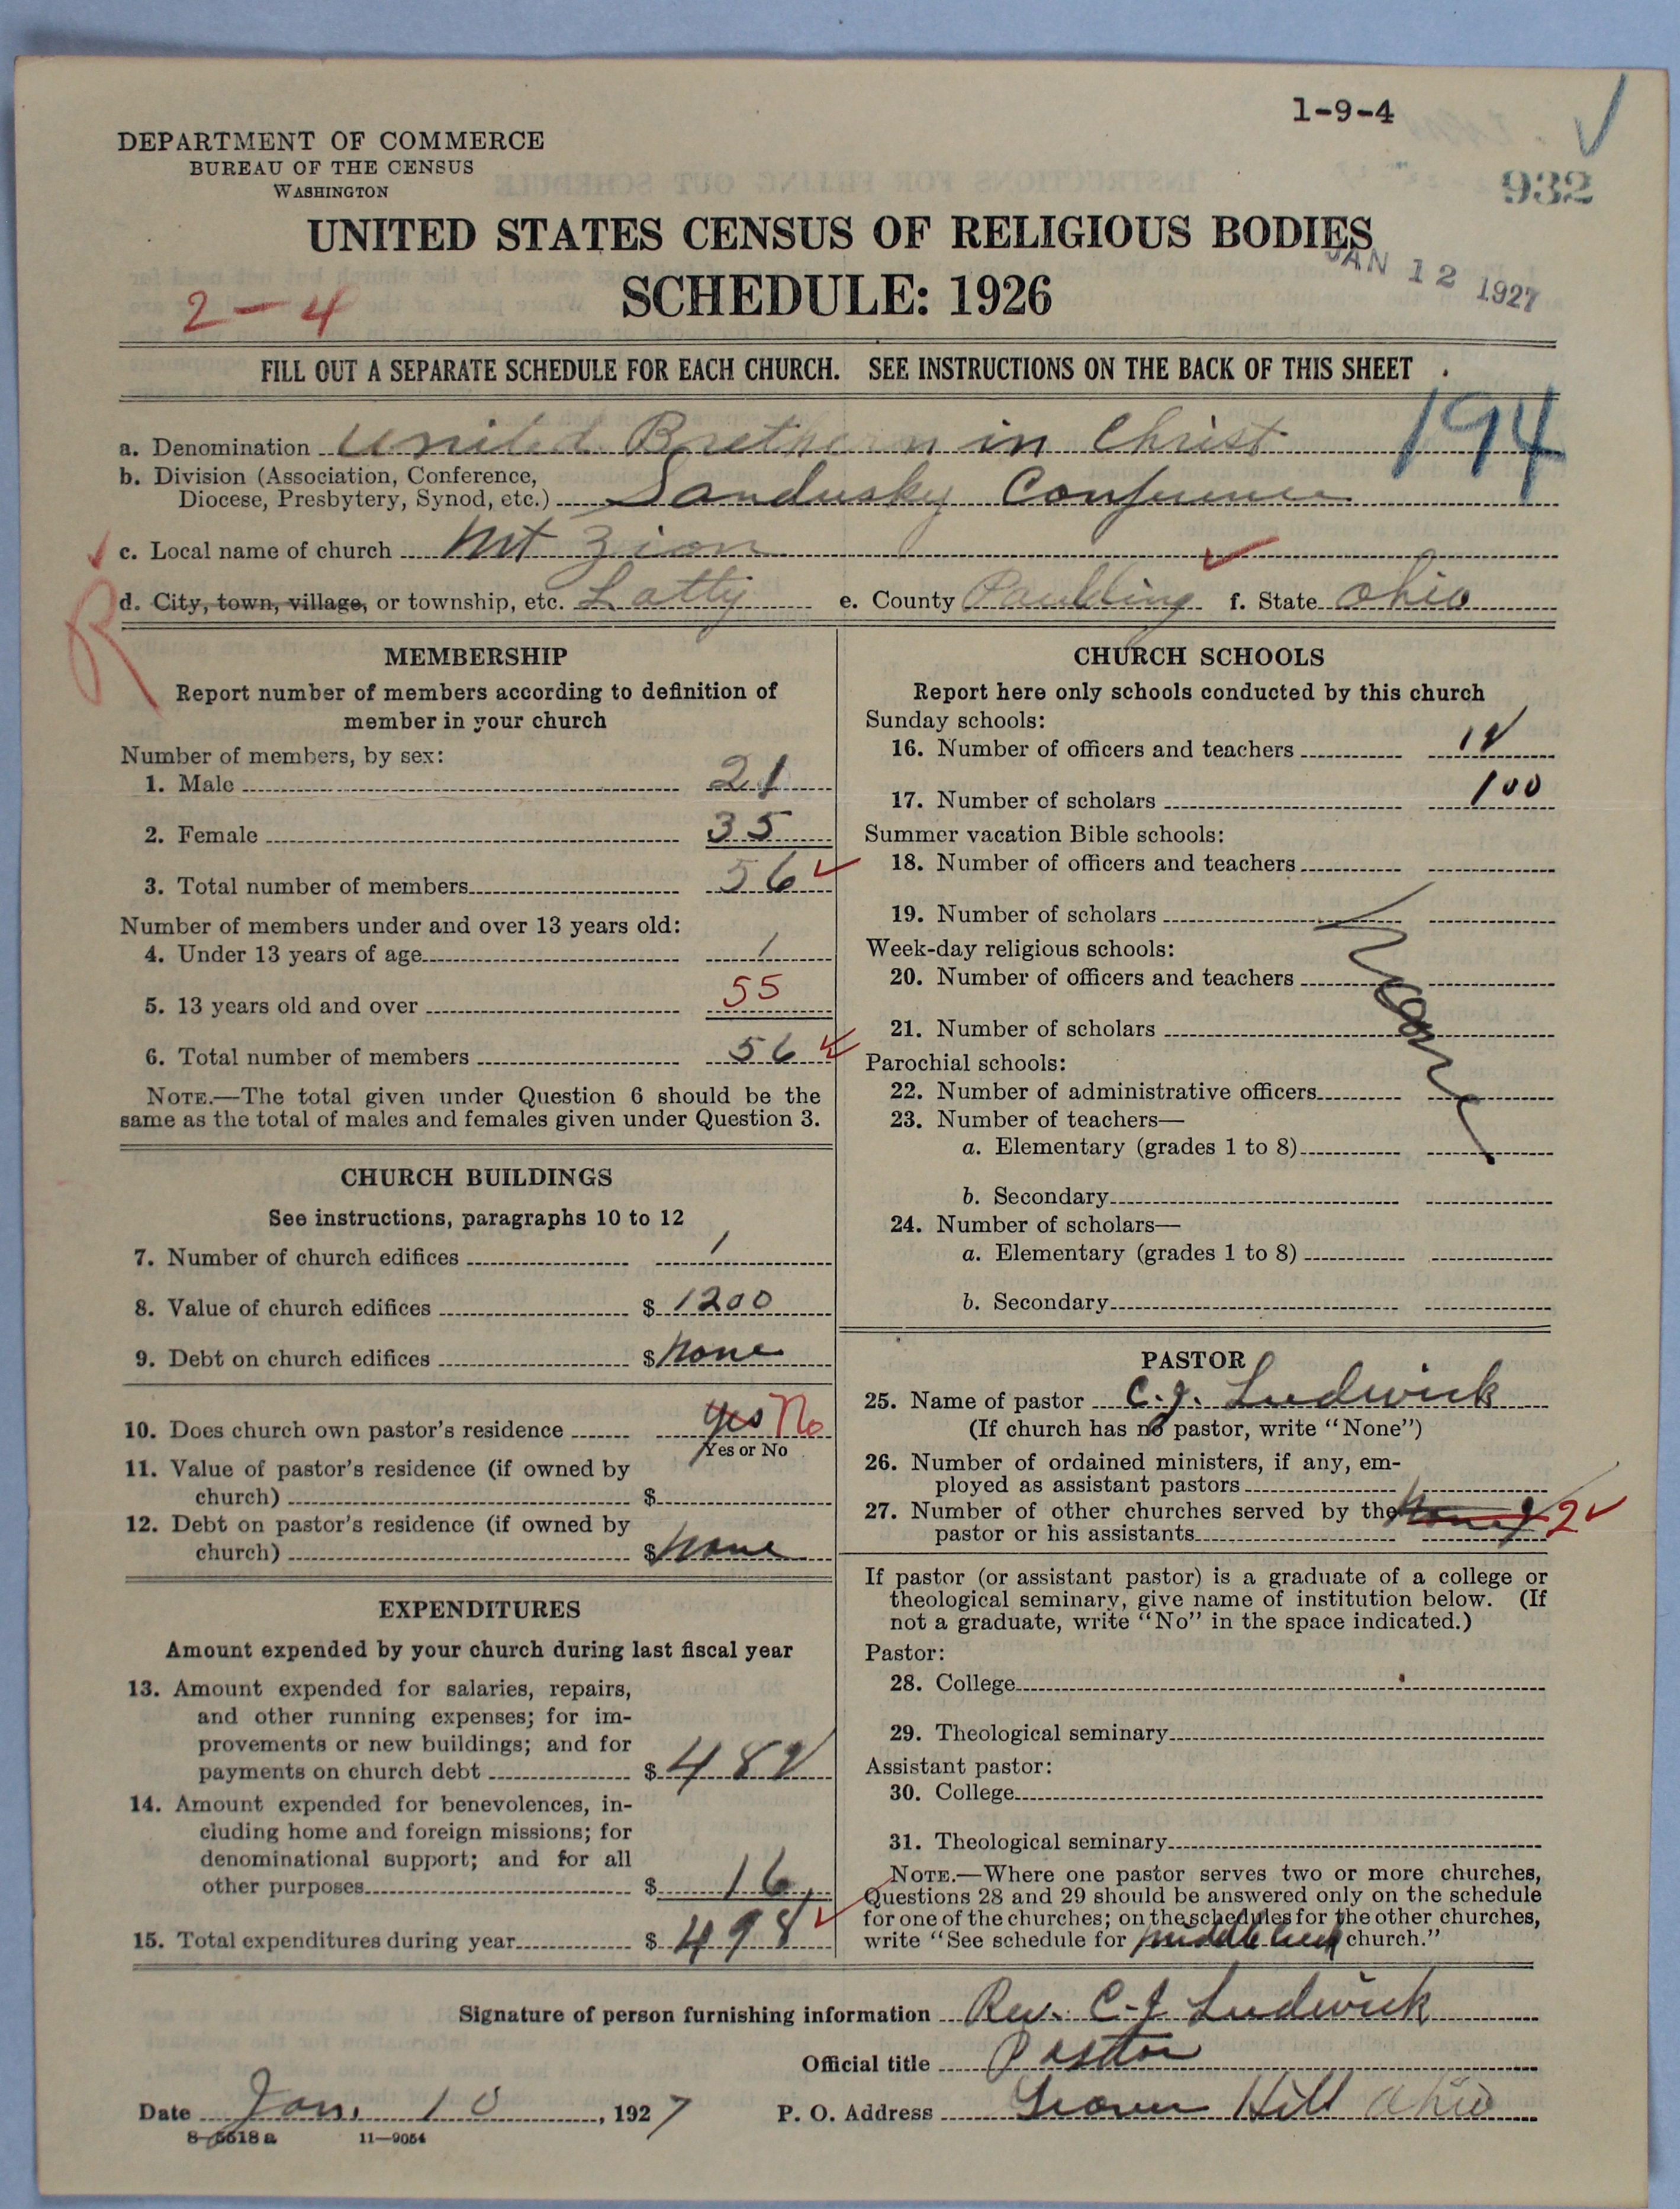 1-9-4
DEPARTMENT OF COMMERCE
BUREAU OF THE CENSUS
WASHINGTON
932
UNITED STATES CENSUS OF RELIGIOUS BODIES
JAN 12 1927
SCHEDULE: 1926
2-4
FILL OUT A SEPARATE SCHEDULE FOR EACH CHURCH. SEE INSTRUCTIONS ON THE BACK OF THIS SHEET
194
a. Denomination United Brethern in Christ
b. Division (Association, Conference,
Diocese, Presbytery, Synod, etc.) Sandusky Conference
c. Local name of church Mt Zion
d. City, town, village, or township, etc. Latty e. County Paulding f. State Ohio
R
MEMBERSHIP
Report number of members according to definition of
member in your church
Number of members, by sex:
1. Male 21
2. Female 35
3. Total number of members 56
Number of members under and over 13 years old:
4. Under 13 years of age 1
5. 13 years old and over 55
6. Total number of members 56
NOTE.—The total given under Question 6 should be the
same as the total of males and females given under Question 3.
CHURCH BUILDINGS
See instructions, paragraphs 10 to 12
7. Number of church edifices 1
8. Value of church edifices $ 1200
9. Debt on church edifices $ None
10. Does church own pastor's residence Yes No
Yes or No
11. Value of pastor's residence (if owned by
church) $
12. Debt on pastor's residence (if owned by
church) $ None
EXPENDITURES
Amount expended by your church during last fiscal year
13. Amount expended for salaries, repairs,
and other running expenses; for im-
provements or new buildings; and for
payments on church debt $ 482
14. Amount expended for benevolences, in-
cluding home and foreign missions; for
denominational support; and for all
other purposes $ 16
15. Total expenditures during year $ 498
CHURCH SCHOOLS
Report here only schools conducted by this church
Sunday schools:
16. Number of officers and teachers 12
17. Number of scholars 100
Summer vacation Bible schools:
18. Number of officers and teachers
19. Number of scholars
Week-day religious schools:
20. Number of officers and teachers
21. Number of scholars
Parochial schools:
22. Number of administrative officers
23. Number of teachers—
a. Elementary (grades 1 to 8)
b. Secondary
24. Number of scholars—
a. Elementary (grades 1 to 8)
b. Secondary
PASTOR
25. Name of pastor C. J. Ludwick
(If church has no pastor, write "None")
26. Number of ordained ministers, if any, em-
ployed as assistant pastors
27. Number of other churches served by the
pastor or his assistants 2
If pastor (or assistant pastor) is a graduate of a college or
theological seminary, give name of institution below. (If
not a graduate, write "No" in the space indicated.)
Pastor:
28. College
29. Theological seminary
Assistant pastor:
30. College
31. Theological seminary
NOTE.—Where one pastor serves two or more churches,
Questions 28 and 29 should be answered only on the schedule
for one of the churches; on the schedules for the other churches,
write "See schedule for Middle Creek church."
Signature of person furnishing information Rev. C. J. Ludwick
Official title Pastor
Date Jan. 10, 1927 P. O. Address Grover Hill Ohio
8-5518 a 11—9054